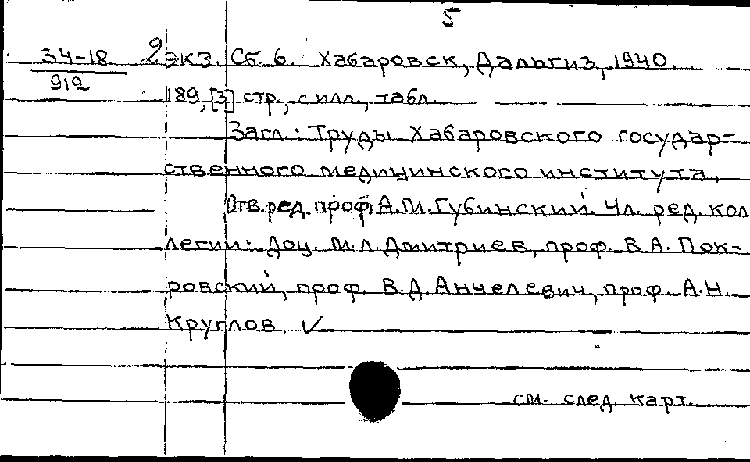 5
34-18 2 экз. Сб. 6. Хабаровск, Дальгиз, 1940.
912
189, [3] стр., с илл., табл.
Загл.: Труды Хабаровского государ-
ственного медицинского института.
Отв. ред. проф. А.М. Губинский. Чл. ред. кол
легии: Доц. М.Л. Дмитриев, проф. В.А. Пок-
ровский, проф. В.Д. Анчелевич, проф. А.Н.
Круглов.
см. след. карт.